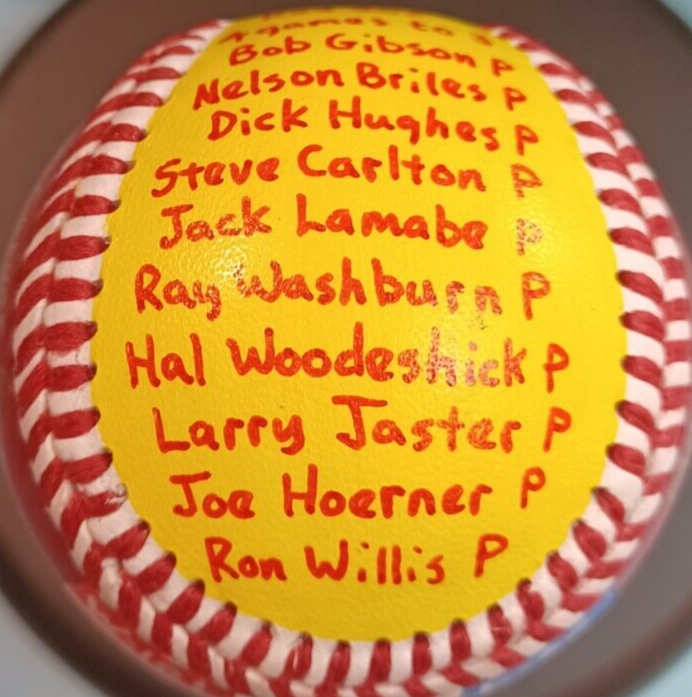 4 games to 3
Bob Gibson P
Nelson Briles P
Dick Hughes P
Steve Carlton P
Jack Lamabe P
Ray Washburn P
Hal Woodeshick P
Larry Jaster P
Joe Hoerner P
Ron Willis P